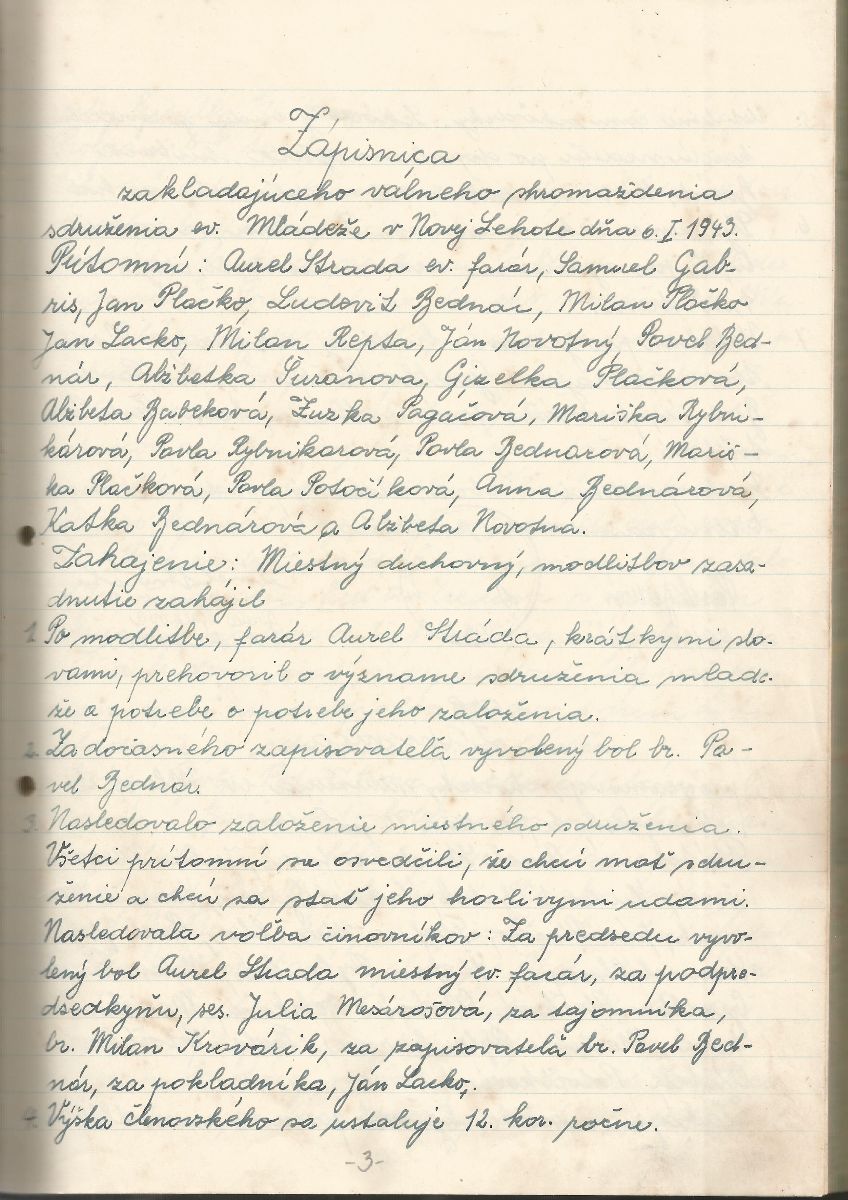 Zápisnica
zakladajúceho válneho shromaždenia
sdruženia ev. Mládeže v Novej Lehote dňa 6. I. 1943.
Prítomní: Aurel Strada ev. farár, Samuel Gab-
ris, Jan Plačko, Ludevit Bednár, Milan Plačko
Jan Lacko, Milan Repta, Ján Novotný, Pavel Bed-
nár, Alžbetka Šuranova, Gizelka Plačková,
Alžbeta Babeková, Zuzka Pagáčová, Mariška Rybni-
kárová, Pavla Rybnikarová, Pavla Bednarová, Mariš-
ka Plačková, Pavla Potočiková, Anna Bednárová,
Katka Bednárová a Alžbeta Novotná.
Zahajenie: Miestný duchovný, modlitbov zasa-
dnutie zahájil
1. Po modlitbe, farár Aurel Stráda, krátkymi slo-
vami, prehovoril o význame sdruženia mláde-
že a potrebe o potrebe jeho založenia.
2. Za dočasného zapisovateľa vyvolený bol br. Pa-
vel Bednár.
3. Nasledovalo založenie miestného sdruženia.
Všetci prítomní sa osvedčili, že chcú mať sdru-
ženie a chcú sa stať jeho horlivymi udami.
Nasledovala voľba činovníkov: Za predsedu vyvo-
lený bol Aurel Strada miestný ev. farár, za podpre-
dsedkyňu, ses. Julia Mesárošová, za tajomníka,
br. Milan Kravárik, za zapisovateľa br. Pavel Bed-
nár, za pokladníka, Ján Lacko,.
4. Výška členovského sa ustaluje 12. kor. ročne.
-3-